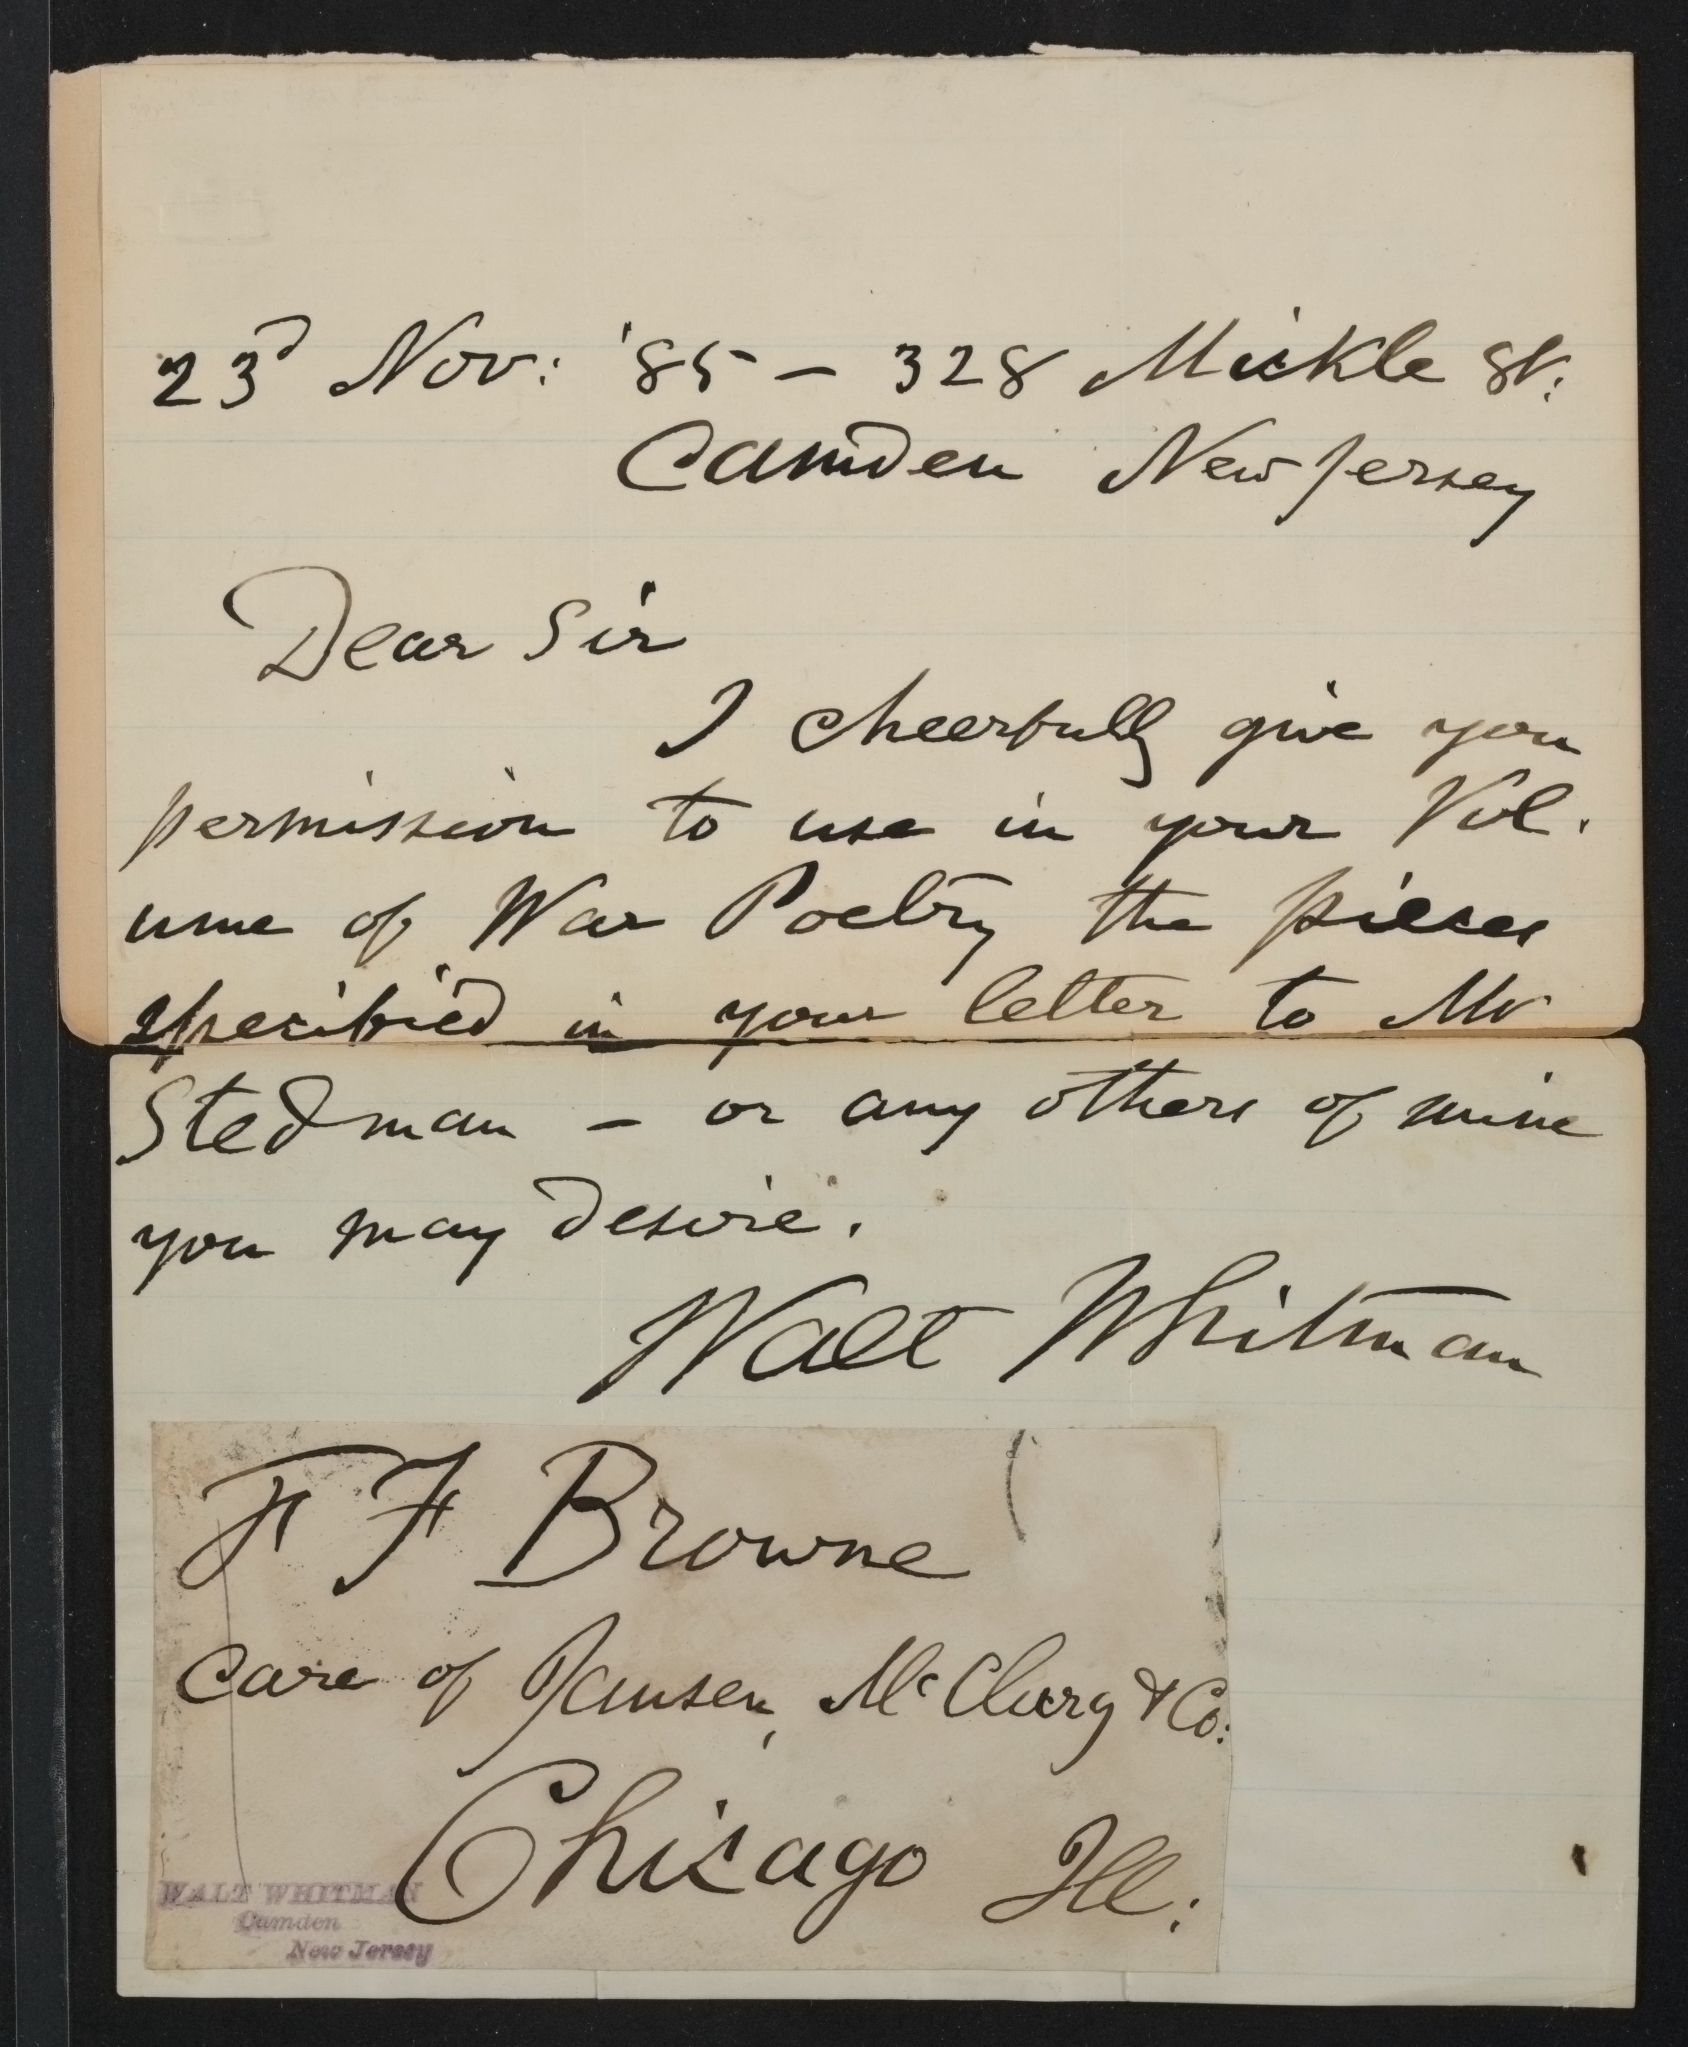 23d Nov: '85 – 328 Mickle St:
Camden New Jersey
Dear Sir
I cheerfully give you
permission to use in your Vol.
ume of War Poetry the pieces
specified in your letter to Mr
Stedman – or any others of mine
you may desire.
Walt Whitman
F F Browne
care of Jansen, McClurg & Co:
Chicago Ill:
WALT WHITMAN
Camden
New Jersey